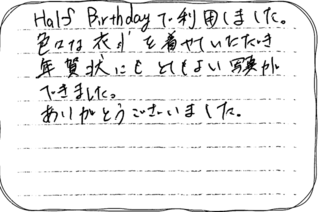 Half Birthdayで利用しました。
色々な衣小を着せていただき
年賀状にもとてもよい写真が
できました。
ありがとうございました。